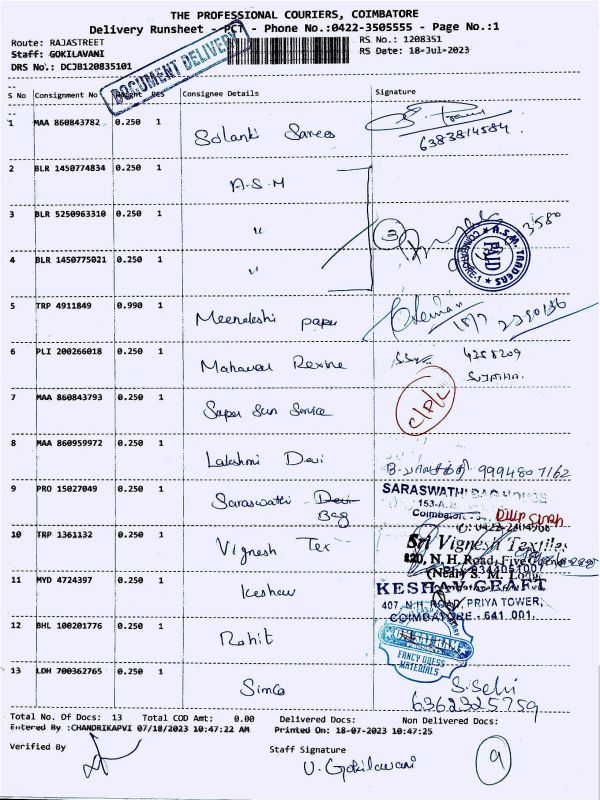 THE PROFESSIONAL COURIERS, COIMBATORE
Delivery Runsheet - PC7 - Phone No.:0422-3505555 - Page No.:1
Route: RAJASTREET
RS No.: 1208351
Staff: GOKILAVANI
RS Date: 18-Jul-2023
DRS No.: DCJB120835101
DOCUMENT DELIVERY
S No Consignment No Pcs Consignee Details Signature
1 MAA 860843782 0.250 1 Solanki Sarees
6383814584
2 BLR 1450774834 0.250 1 A.S.M
3 BLR 5250963310 0.250 1 "
3 3580
A.S.M. TRADERS
PAID
COIMBATORE-1
4 BLR 1450775021 0.250 1 "
5 TRP 4911849 0.990 1 Meenakshi paper
18/7 2390136
6 PLI 200266018 0.250 1 Mahaveer Rexine
4358209
SUJATHA.
7 MAA 860843793 0.250 1 Super Sun Service
8 MAA 860959972 0.250 1 Lakshmi Devi
9994807162
9 PRO 15027049 0.250 1 Saraswathi Devi
Bag
SARASWATHI BAG HOUSE
Dilip Singh
10 TRP 1361132 0.250 1 Vignesh Tex
Sri Vignesh Textiles
120, N. H. Road, Five Corner
(Near) S. M.
11 MYD 4724397 0.250 1 Keshav
KESHAV CRAFT
407, N.H. ROAD, PRIYA TOWER,
COIMBATORE - 641 001.
12 BHL 100201776 0.250 1 Rohit
FANCY DRESS
MATERIALS
13 LDH 700362765 0.250 1 Simco
S. Selvi
6362325759
Total No. Of Docs: 13 Total COD Amt: 0.00 Delivered Docs: Non Delivered Docs:
Entered By :CHANDRIKAPVI 07/18/2023 10:47:22 AM Printed On: 18-07-2023 10:47:25
Verified By Staff Signature
V. Gokilavani
9